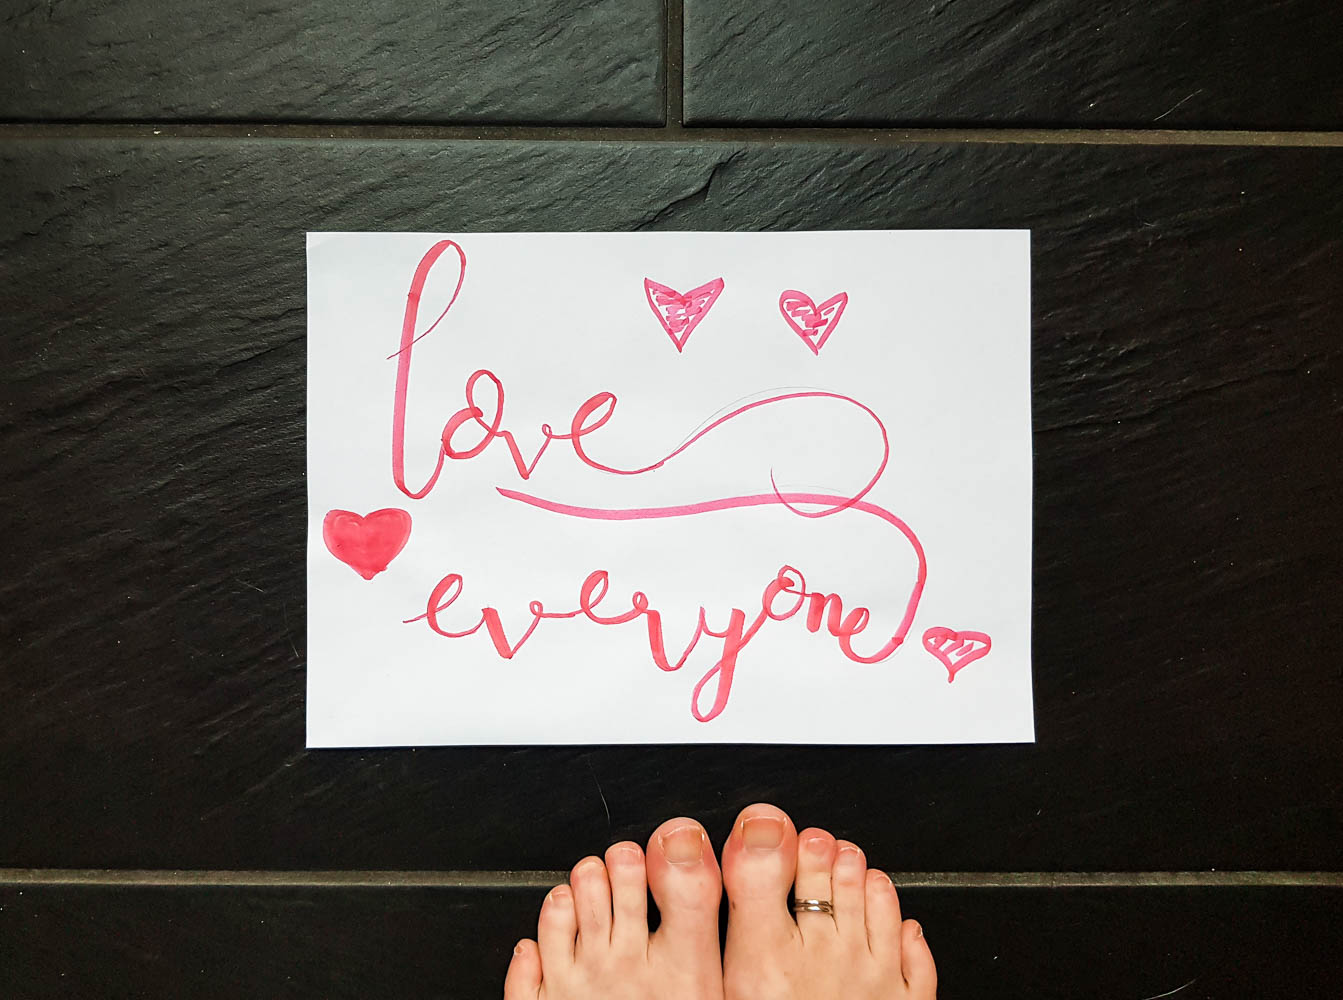 love
everyone